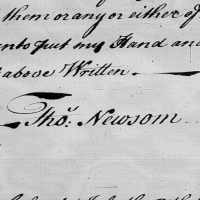 them or any or either of
unto put my Hand and
above Written
Tho: Newsom